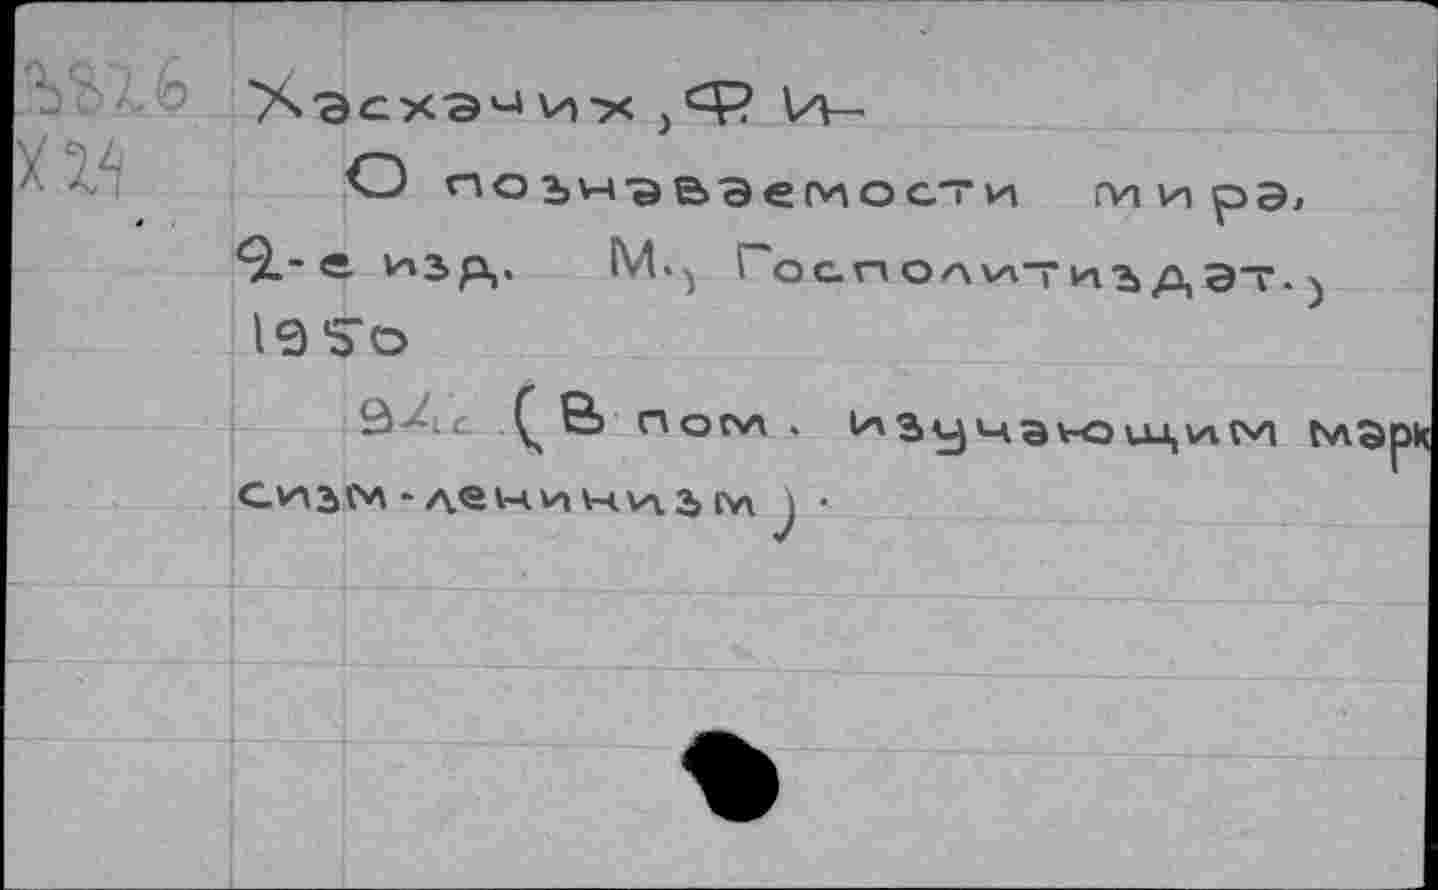 3В26 Хасхачих, Ф. И-
Х24 О познаваемости мира,
2-е изд. М., Госполитиздат.,
1950
94 с (В пом. изучающим марк
сизм-ленинизм).